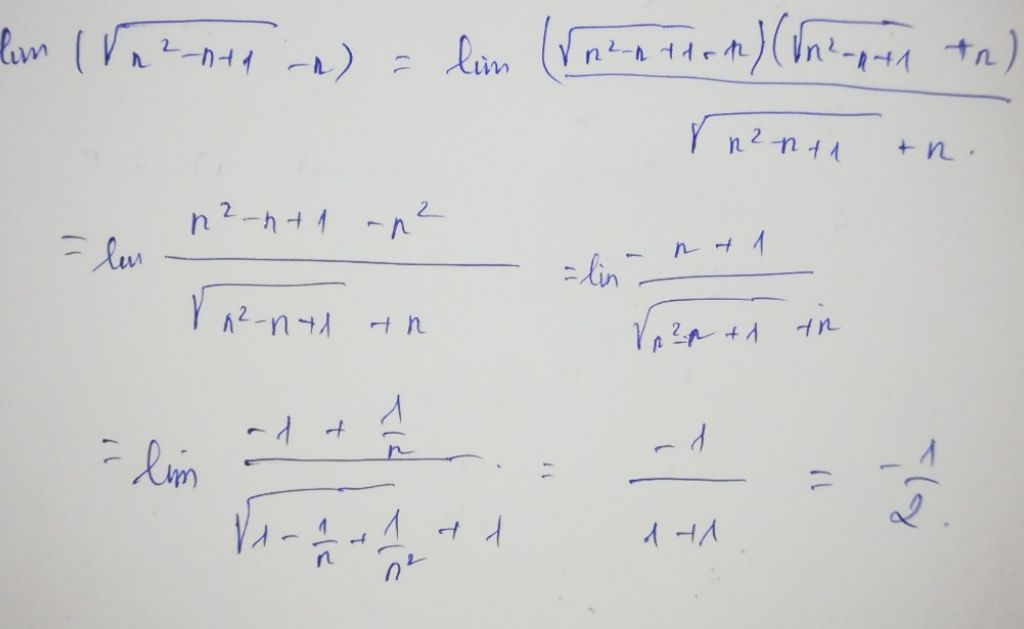 lim (√(n²-n+1) -n) = lim ((√(n²-n+1) - n)(√(n²-n+1) +n))/(√(n²-n+1) + n).
= lim (n²-n+1 -n²)/(√(n²-n+1) + n) = lim (-n+1)/(√(n²-n+1) +n)
= lim (-1 + 1/n)/(√(1 - 1/n + 1/n²) + 1). = (-1)/(1+1) = -1/2.